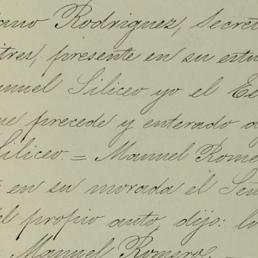 ano Rodriguez, Secre
tres, presente en su estu
anuel Siliceo yo el Es
ue precede y enterado d
Siliceo. = Manuel Rome
en su morada el Sen
el propio auto, dijo: lo
Manuel Romero,